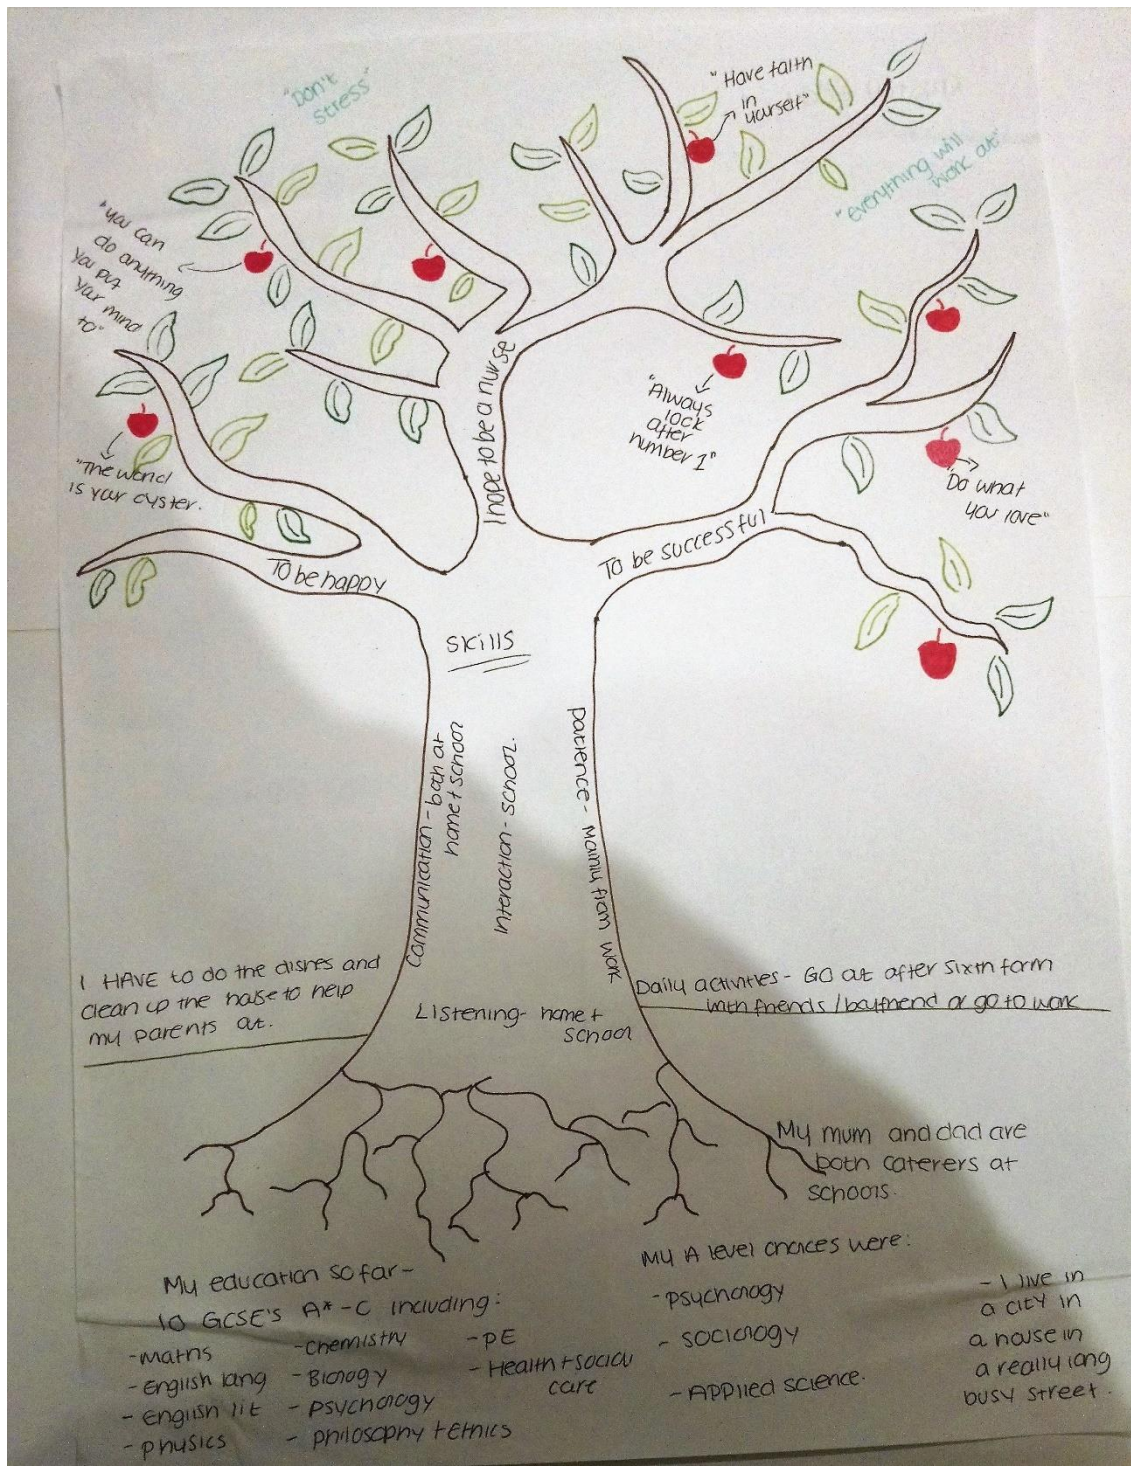 "Don't
stress"
"Have faith
in
yourself"
"everything will
work out"
"you can
do anything
you put
your mind
to"
"Always
look
after
number 1"
"The world
is your oyster.
"Do what
you love"
I hope to be a nurse
To be happy
To be successful
Skills
Communication - both at
home + school
Interaction - school.
patience - Mainly from work
Listening - home +
school
I HAVE to do the dishes and
clean up the house to help
my parents out.
Daily activities - GO out after sixth form
with friends / boyfriend or go to work
My mum and dad are
both caterers at
schools.
My education so far -
10 GCSE's A* - C including:
- maths
- English lang
- English lit
- physics
- chemistry
- Biology
- psychology
- philosophy + ethics
- PE
- Health + social
care
My A level choices were:
- psychology
- sociology
- Applied science.
- I live in
a city in
a house in
a really long
busy street.